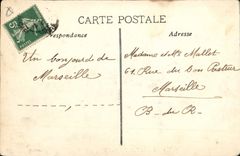 CARTE POSTALE
Correspondance
Adresse
Un bonjour de
Marseille
Madame et Mr Mallet
61 Rue du bon Pasteur
Marseille
B. du R.